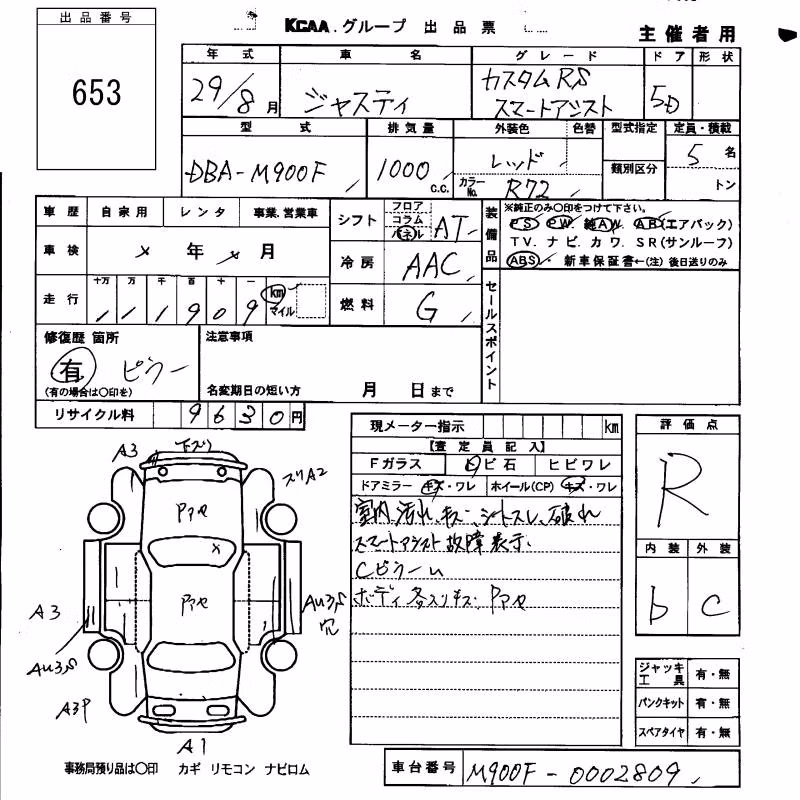 出品番号
653
KCAA.グループ 出品票
主催者用
年式 車名 グレード ドア 形状
29/8月 ジャスティ カスタムRS スマートアシスト 5D
型式 排気量 外装色 色替 型式指定 定員・積載
DBA-M900F 1000 c.c. レッド カラーNo. R72 類別区分 5名 トン
車歴 自家用 レンタ 事業.営業車
車検 メ年メ月
走行 十万 万 千 百 十 一
111909 km マイル
シフト フロア コラム パネル AT
冷房 AAC
燃料 G
装備品
※純正のみ〇印をつけて下さい。
PS PW 純AW AB(エアバック)
TV. ナビ. カワ. SR(サンルーフ)
ABS 新車保証書←(注)後日送りのみ
セールスポイント
修復歴 箇所
有 ピラー
(有の場合は〇印を)
注意事項
名変期日の短い方 月 日まで
リサイクル料 9630円
現メーター指示 km
【査定員記入】
Fガラス ヒビ石 ヒビワレ
ドアミラー キズ・ワレ ホイール(CP) キズ・ワレ
室内汚れ、キズ、シートスレ、破れ
スマートアシスト故障表示
Cピラーム
ボディ各スリキズ Pアセ
評価点
R
内装 外装
b c
ジャッキ工具 有・無
パンクキット 有・無
スペアタイヤ 有・無
A3 下ズリ
スリA2
Pアセ
Pアセ
A3
AU3,S
AU3,S
穴
A3P
A1
事務局預り品は〇印 カギ リモコン ナビロム
車台番号 M900F-0002809